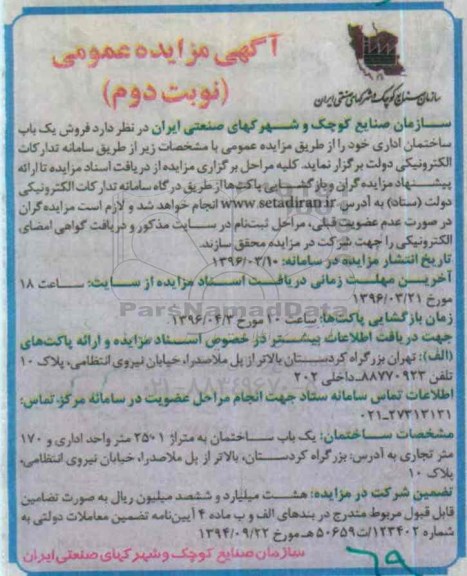 آگهی مزایده عمومی
(نوبت دوم)
سازمان صنایع کوچک و شهرکهای صنعتی ایران
سازمان صنایع کوچک و شهرکهای صنعتی ایران در نظر دارد فروش یک باب
ساختمان اداری خود را از طریق مزایده عمومی با مشخصات زیر از طریق سامانه تدارکات
الکترونیکی دولت برگزار نماید. کلیه مراحل برگزاری مزایده از دریافت اسناد مزایده تا ارائه
پیشنهاد مزایده گران و بازگشایی پاکت‌ها از طریق درگاه سامانه تدارکات الکترونیکی
دولت (ستاد) به آدرس www.setadiran.ir انجام خواهد شد و لازم است مزایده گران
در صورت عدم عضویت قبلی، مراحل ثبت‌نام در سایت مذکور و دریافت گواهی امضای
الکترونیکی را جهت شرکت در مزایده محقق سازند.
تاریخ انتشار مزایده در سامانه: ۱۳۹۶/۰۳/۱۰
آخرین مهلت زمانی دریافت اسناد مزایده از سایت: ساعت ۱۸
مورخ ۱۳۹۶/۰۳/۲۱
زمان بازگشایی پاکت‌ها: ساعت ۱۰ مورخ ۱۳۹۶/۰۴/۳
جهت دریافت اطلاعات بیشتر در خصوص اسناد مزایده و ارائه پاکت‌های
(الف): تهران بزرگراه کردستان بالاتر از پل ملاصدرا، خیابان نیروی انتظامی، پلاک ۱۰
تلفن ۸۸۷۷۰۹۲۳-داخلی ۲۰۲
اطلاعات تماس سامانه ستاد جهت انجام مراحل عضویت در سامانه مرکز تماس:
۰۲۱-۲۷۳۱۳۱۳۱
مشخصات ساختمان: یک باب ساختمان به متراژ ۳۵۰۱ متر واحد اداری و ۱۷۰
متر تجاری به آدرس: بزرگراه کردستان، بالاتر از پل ملاصدرا، خیابان نیروی انتظامی،
پلاک ۱۰
تضمین شرکت در مزایده: هشت میلیارد و ششصد میلیون ریال به صورت تضامین
قابل قبول مربوط مندرج در بندهای الف و ب ماده ۴ آیین‌نامه تضمین معاملات دولتی به
شماره ۱۲۳۴۰۲/ت۵۰۶۵۹هـ مورخ ۱۳۹۴/۰۹/۲۲
سازمان صنایع کوچک و شهرکهای صنعتی ایران
۶۹
ParsNamadData